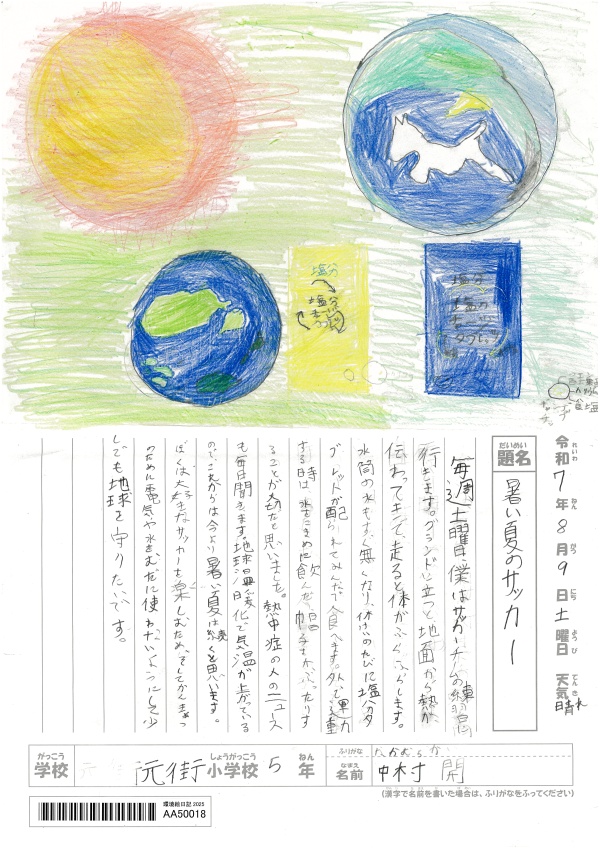 塩分
塩分
チャージ
タブレッツ
塩分
塩分
タブレッツ
令和7年8月9日土曜日 天気 晴れ
れいわ ねん がつ にち ようび てんき
だいめい
題名
暑い夏のサッカー
毎週土曜日、僕はサッカーチームの練習に
行きます。グランドに立つと地面から熱が
伝わってきて、走ると体がふらふらします。
水筒の水もすぐ無くなり、休けいのたびに塩分タ
ブレットが配られてみんなで食べます。外で運動
する時は、水をこまめに飲んだり、帽子をかぶったりす
ることが大切だと思いました。熱中症の人のニュース
も毎日聞きます。地球温暖化で気温が上がっている
ので、これからは今より暑い夏は続くと思います。
ぼくは大好きなサッカーを楽しむため、そしてかんきょう
のために電気や水をむだに使わないようにして少
しでも地球を守りたいです。
がっこう しょうがっこう ねん
学校 元街小学校 5年
ふりがな なかむら かい
なまえ
名前 中村 開
(漢字で名前を書いた場合は、ふりがなをふってください)
環境絵日記 2025
AA50018